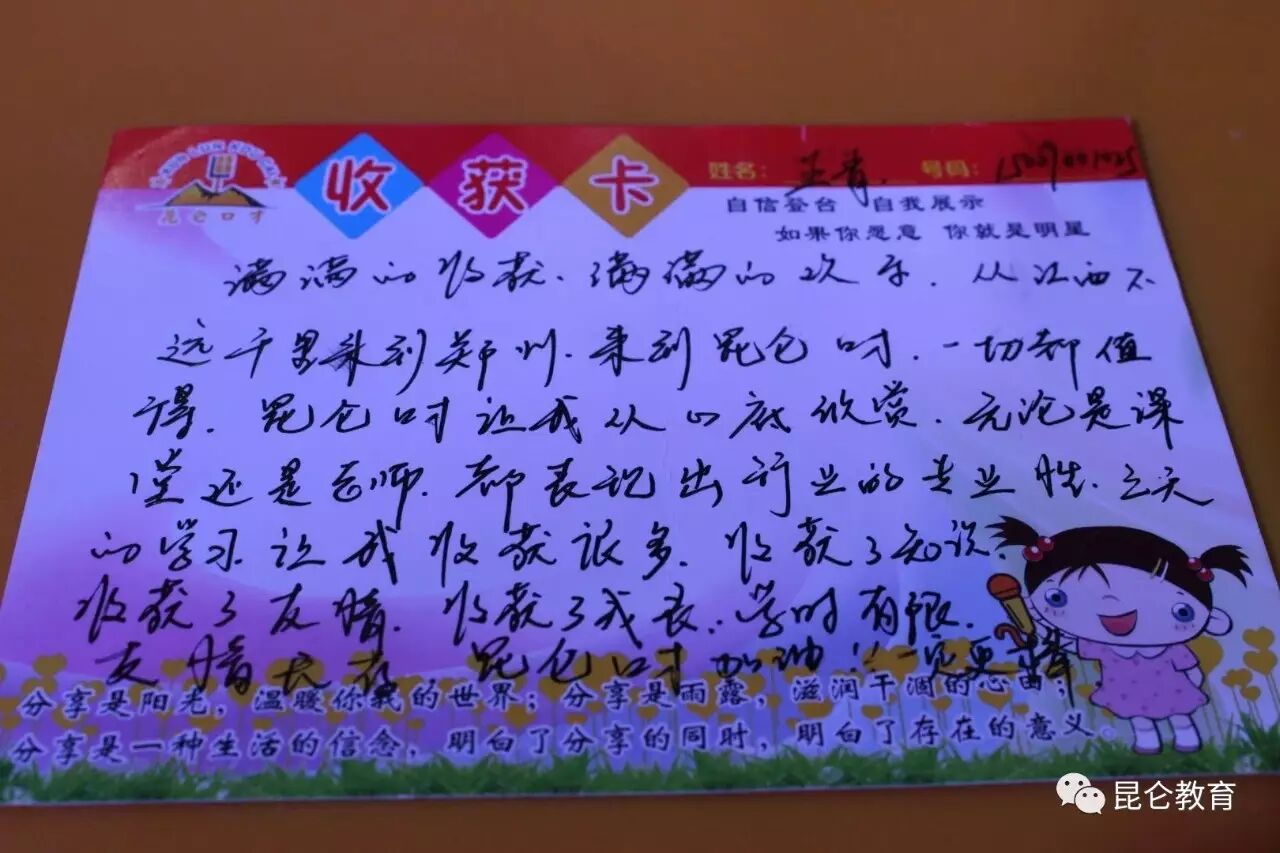 KUN LUN KOU CAI
昆仑口才
收获卡
姓名: 王青 号码:
自信登台 自我展示
如果你愿意 你就是明星
满满的收获、满满的欢乐. 从江西不
远千里来到郑州. 来到昆仑口才. 一切都值
得. 昆仑口才让我从心底欣赏. 无论是课
堂还是老师. 都表现出行业的专业性. 三天
的学习让我收获很多. 收获了知识.
收获了友情. 收获了成长. 学时有限.
友情长存 昆仑口才加油!! 一定更棒
分享是阳光,温暖你我的世界;分享是雨露,滋润干涸的心田;
分享是一种生活的信念,明白了分享的同时,明白了存在的意义。
昆仑教育